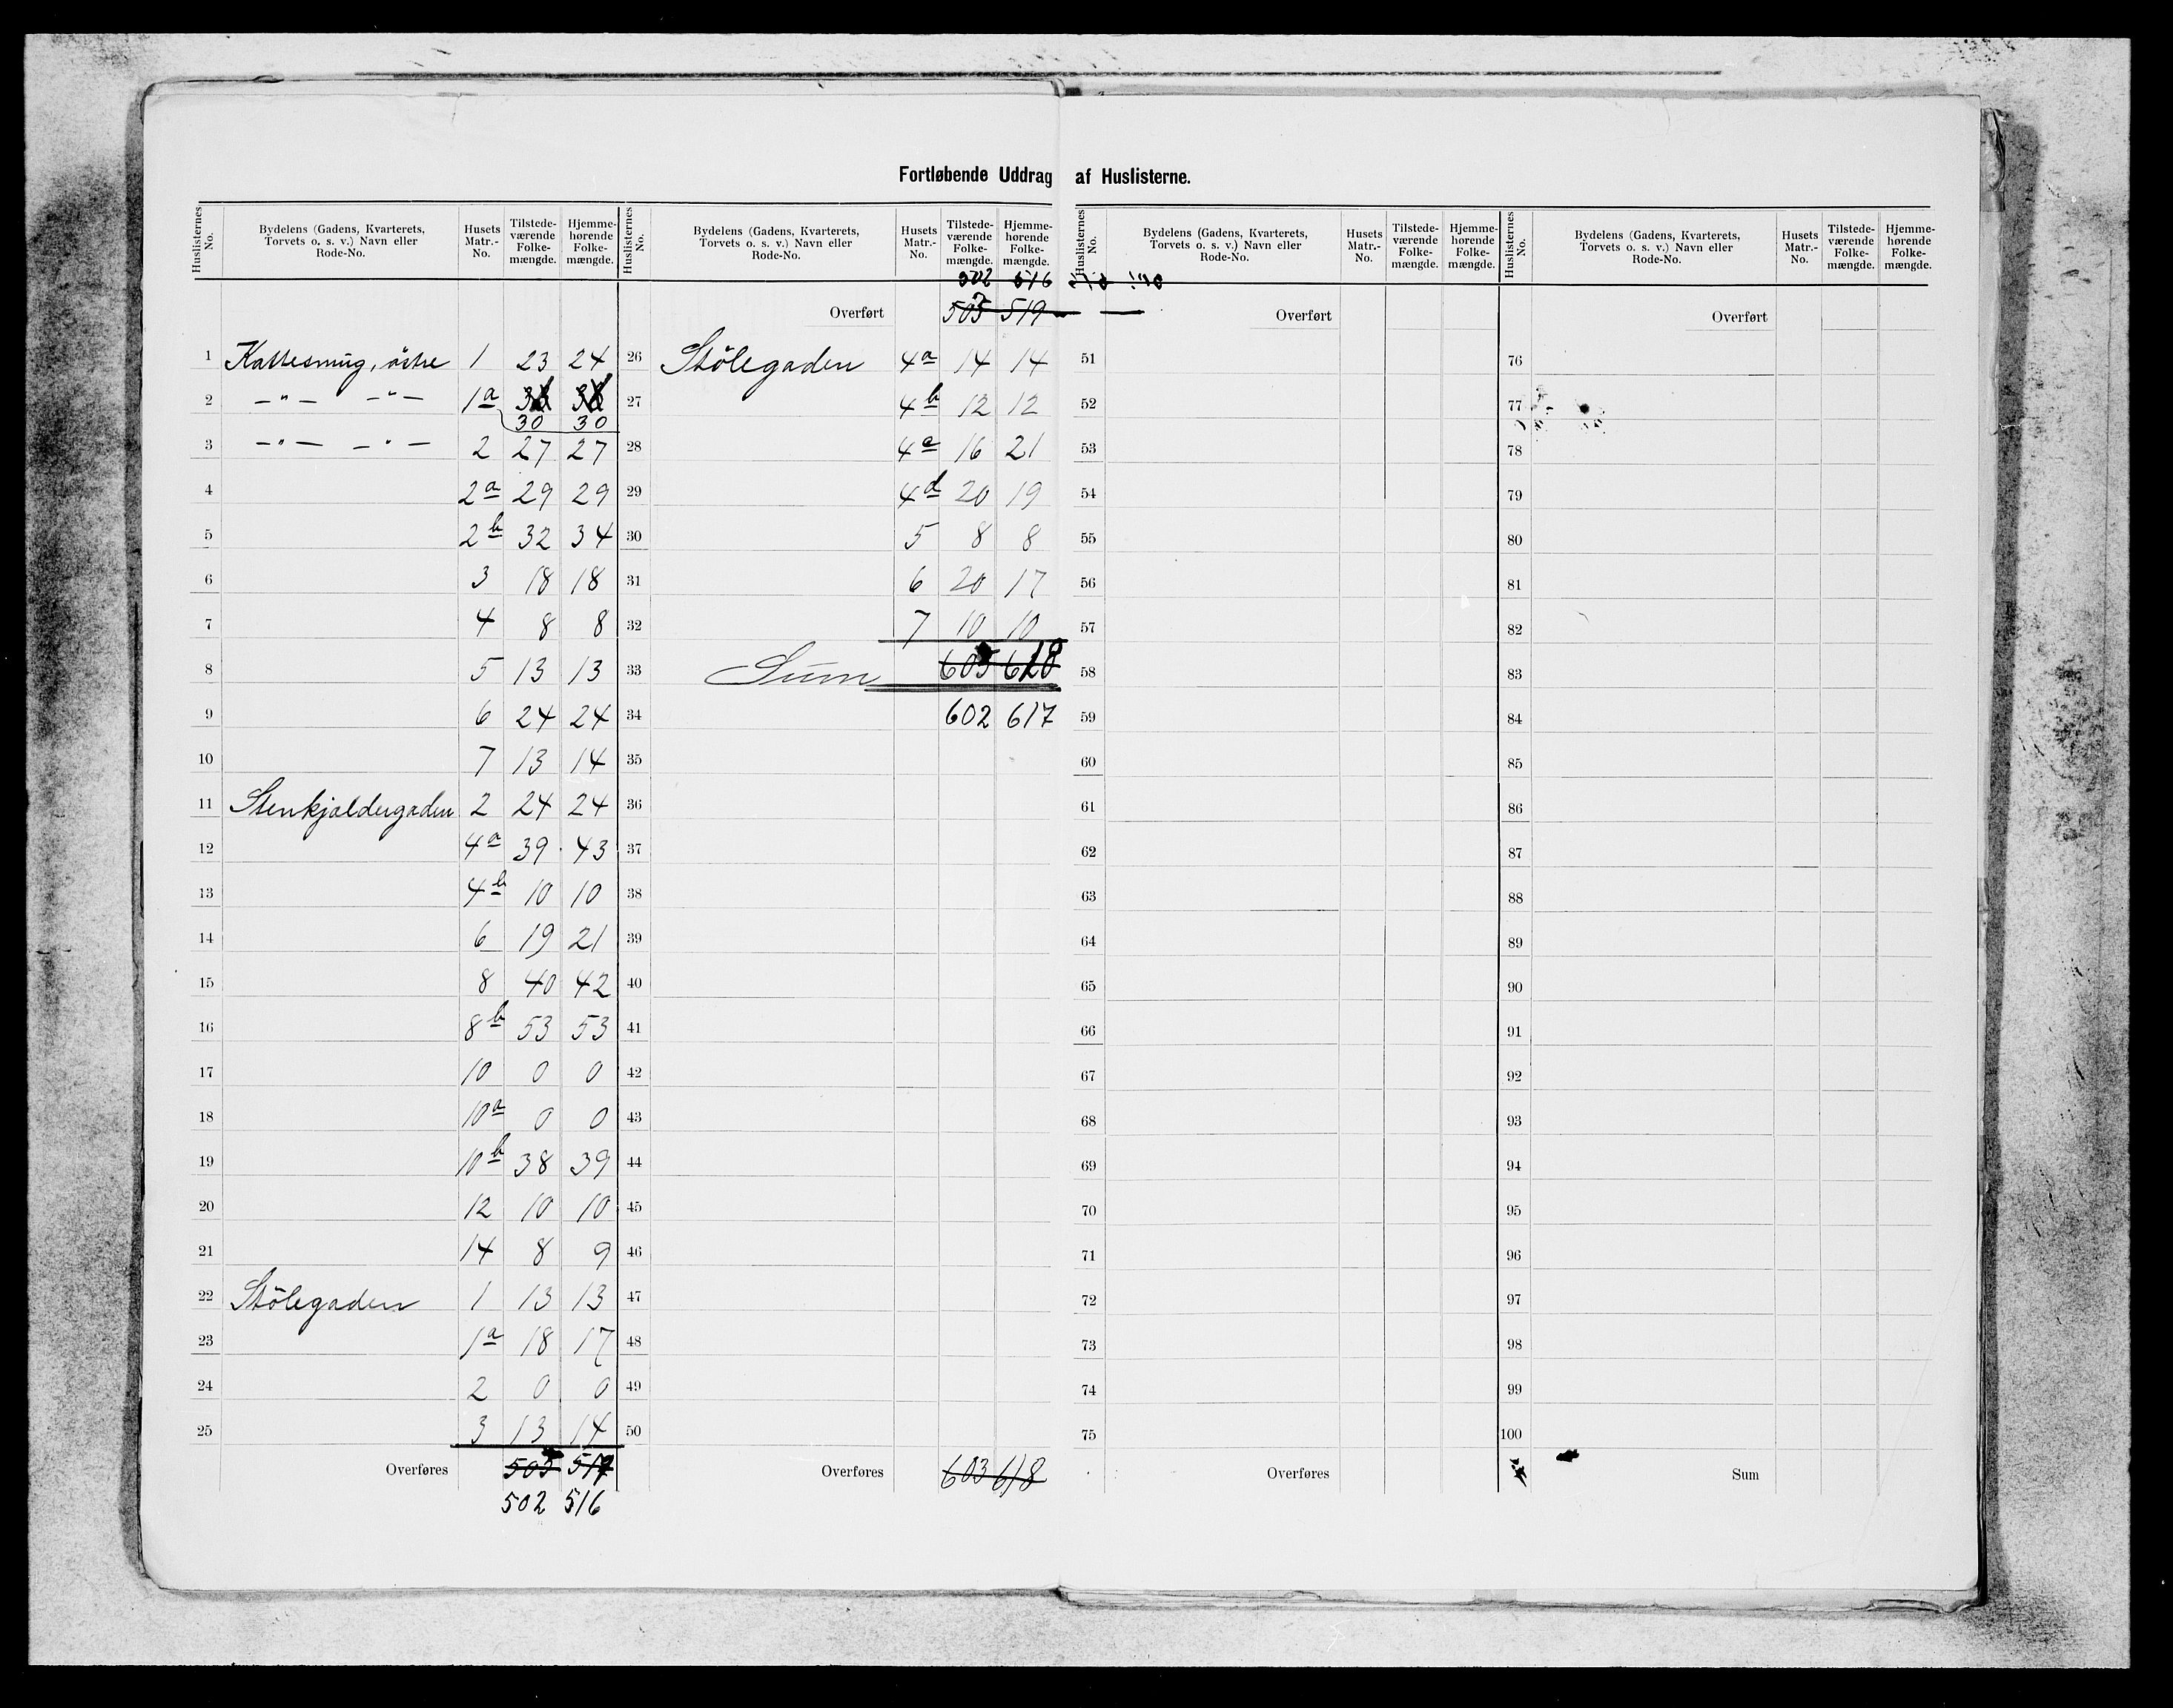 Fortløbende Uddrag af Huslisterne.
Huslisternes No. Bydelens (Gadens, Kvarterets, Torvets o. s. v.) Navn eller Rode-No. Husets Matr.-No. Tilstede-værende Folke-mængde. Hjemme-hørende Folke-mængde.
1 Kattesmug, östre 1 23 24
2 —"— —"— 1a 30 30
3 —"— —"— 2 27 27
4 2a 29 29
5 2b 32 34
6 3 18 18
7 4 8 8
8 5 13 13
9 6 24 24
10 7 13 14
11 Stenkjældergaden 2 24 24
12 4a 39 43
13 4b 10 10
14 6 19 21
15 8 40 42
16 8b 53 53
17 10 0 0
18 10a 0 0
19 10b 38 39
20 12 10 10
21 14 8 9
22 Stölegaden 1 13 13
23 1a 18 17
24 2 0 0
25 3 13 14
Overføres
502 516
Huslisternes No. Bydelens (Gadens, Kvarterets, Torvets o. s. v.) Navn eller Rode-No. Husets Matr.-No. Tilstede-værende Folke-mængde. Hjemme-hørende Folke-mængde.
502 516
Overført 503 519
26 Stölegaden 4a 14 14
27 4b 12 12
28 4c 16 21
29 4d 20 19
30 5 8 8
31 6 20 17
32 7 10 10
33 Sum
34 602 617
35
36
37
38
39
40
41
42
43
44
45
46
47
48
49
50
Overføres 603 618
Huslisternes No. Bydelens (Gadens, Kvarterets, Torvets o. s. v.) Navn eller Rode-No. Husets Matr.-No. Tilstede-værende Folke-mængde. Hjemme-hørende Folke-mængde.
Overført
51
52
53
54
55
56
57
58
59
60
61
62
63
64
65
66
67
68
69
70
71
72
73
74
75
Overføres
Huslisternes No. Bydelens (Gadens, Kvarterets, Torvets o. s. v.) Navn eller Rode-No. Husets Matr.-No. Tilstede-værende Folke-mængde. Hjemme-hørende Folke-mængde.
Overført
76
77
78
79
80
81
82
83
84
85
86
87
88
89
90
91
92
93
94
95
96
97
98
99
100
Sum